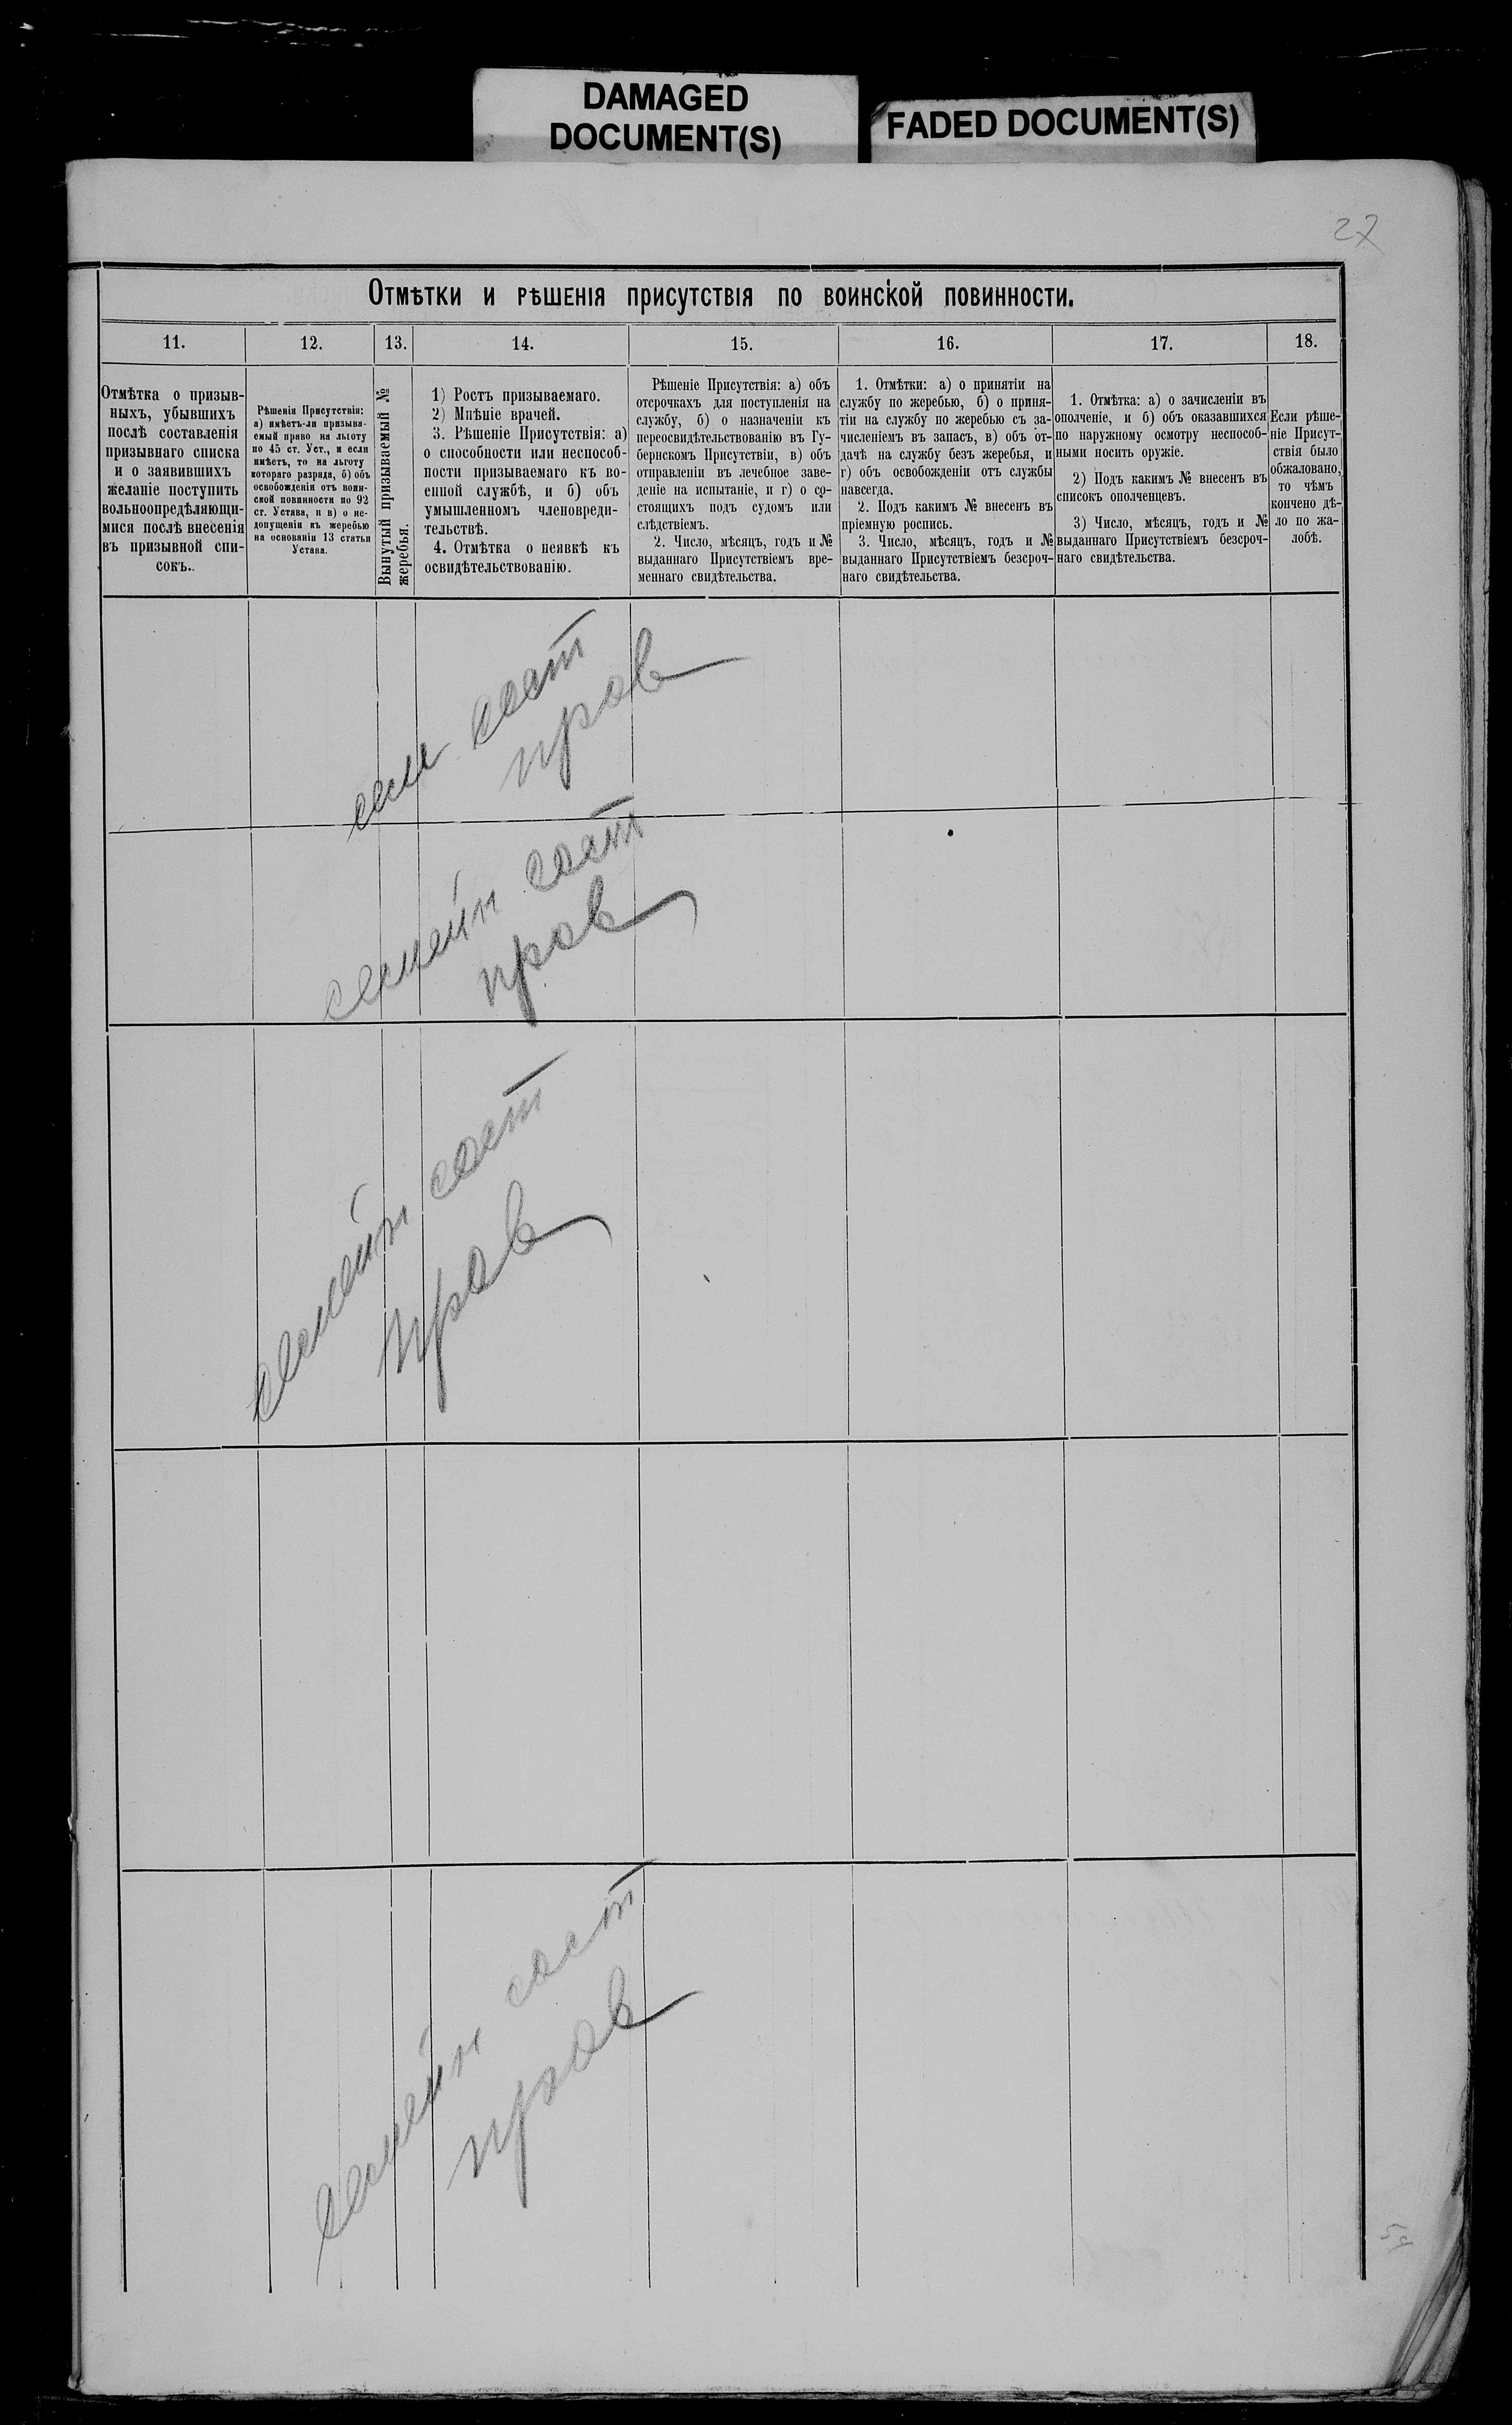 DAMAGED
DOCUMENT(S)
FADED DOCUMENT(S)
27
Отмѣтки и рѣшенія присутствія по воинской повинности.
11.
12.
13.
14.
15.
16.
17.
18.
Отмѣтка о призыв-
ныхъ, убывшихъ
послѣ составленія
призывнаго списка
и о заявившихъ
желаніе поступить
вольноопредѣляющи-
мися послѣ внесенія
въ призывной спи-
сокъ.
Рѣшенія Присутствія:
а) имѣетъ-ли призыва-
емый право на льготу
по 45 ст. Уст., и если
имѣетъ, то на льготу
котораго разряда, б) объ
освобожденіи отъ воин-
ской повинности по 92
ст. Устава, и в) о не-
допущеніи къ жеребью
на основаніи 13 статьи
Устава.
Вынутый призываемый №
жеребья.
1) Ростъ призываемаго.
2) Мнѣніе врачей.
3. Рѣшеніе Присутствія: а)
о способности или неспособ-
ности призываемаго къ во-
енной службѣ, и б) объ
умышленномъ членовреди-
тельствѣ.
4. Отмѣтка о неявкѣ къ
освидѣтельствованію.
Рѣшеніе Присутствія: а) объ
отсрочкахъ для поступленія на
службу, б) о назначеніи къ
переосвидѣтельствованію въ Гу-
бернскомъ Присутствіи, в) объ
отправленіи въ лечебное заве-
деніе на испытаніе, и г) о со-
стоящихъ подъ судомъ или
слѣдствіемъ.
2. Число, мѣсяцъ, годъ и №
выданнаго Присутствіемъ вре-
меннаго свидѣтельства.
1. Отмѣтки: а) о принятіи на
службу по жеребью, б) о приня-
тіи на службу по жеребью съ за-
численіемъ въ запасъ, в) объ от-
дачѣ на службу безъ жеребья, и
г) объ освобожденіи отъ службы
навсегда.
2. Подъ какимъ № внесенъ въ
пріемную роспись.
3. Число, мѣсяцъ, годъ и №
выданнаго Присутствіемъ безсроч-
наго свидѣтельства.
1. Отмѣтка: а) о зачисленіи въ
ополченіе, и б) объ оказавшихся
по наружному осмотру неспособ-
ными носить оружіе.
2) Подъ какимъ № внесенъ въ
списокъ ополченцевъ.
3) Число, мѣсяцъ, годъ и №
выданнаго Присутствіемъ безсроч-
наго свидѣтельства.
Если рѣше-
ніе Присут-
ствія было
обжаловано,
то чѣмъ
кончено дѣ-
ло по жа-
лобѣ.
сем сост
пров
семейн сост
пров
семейн сост
пров
семейн сост
пров